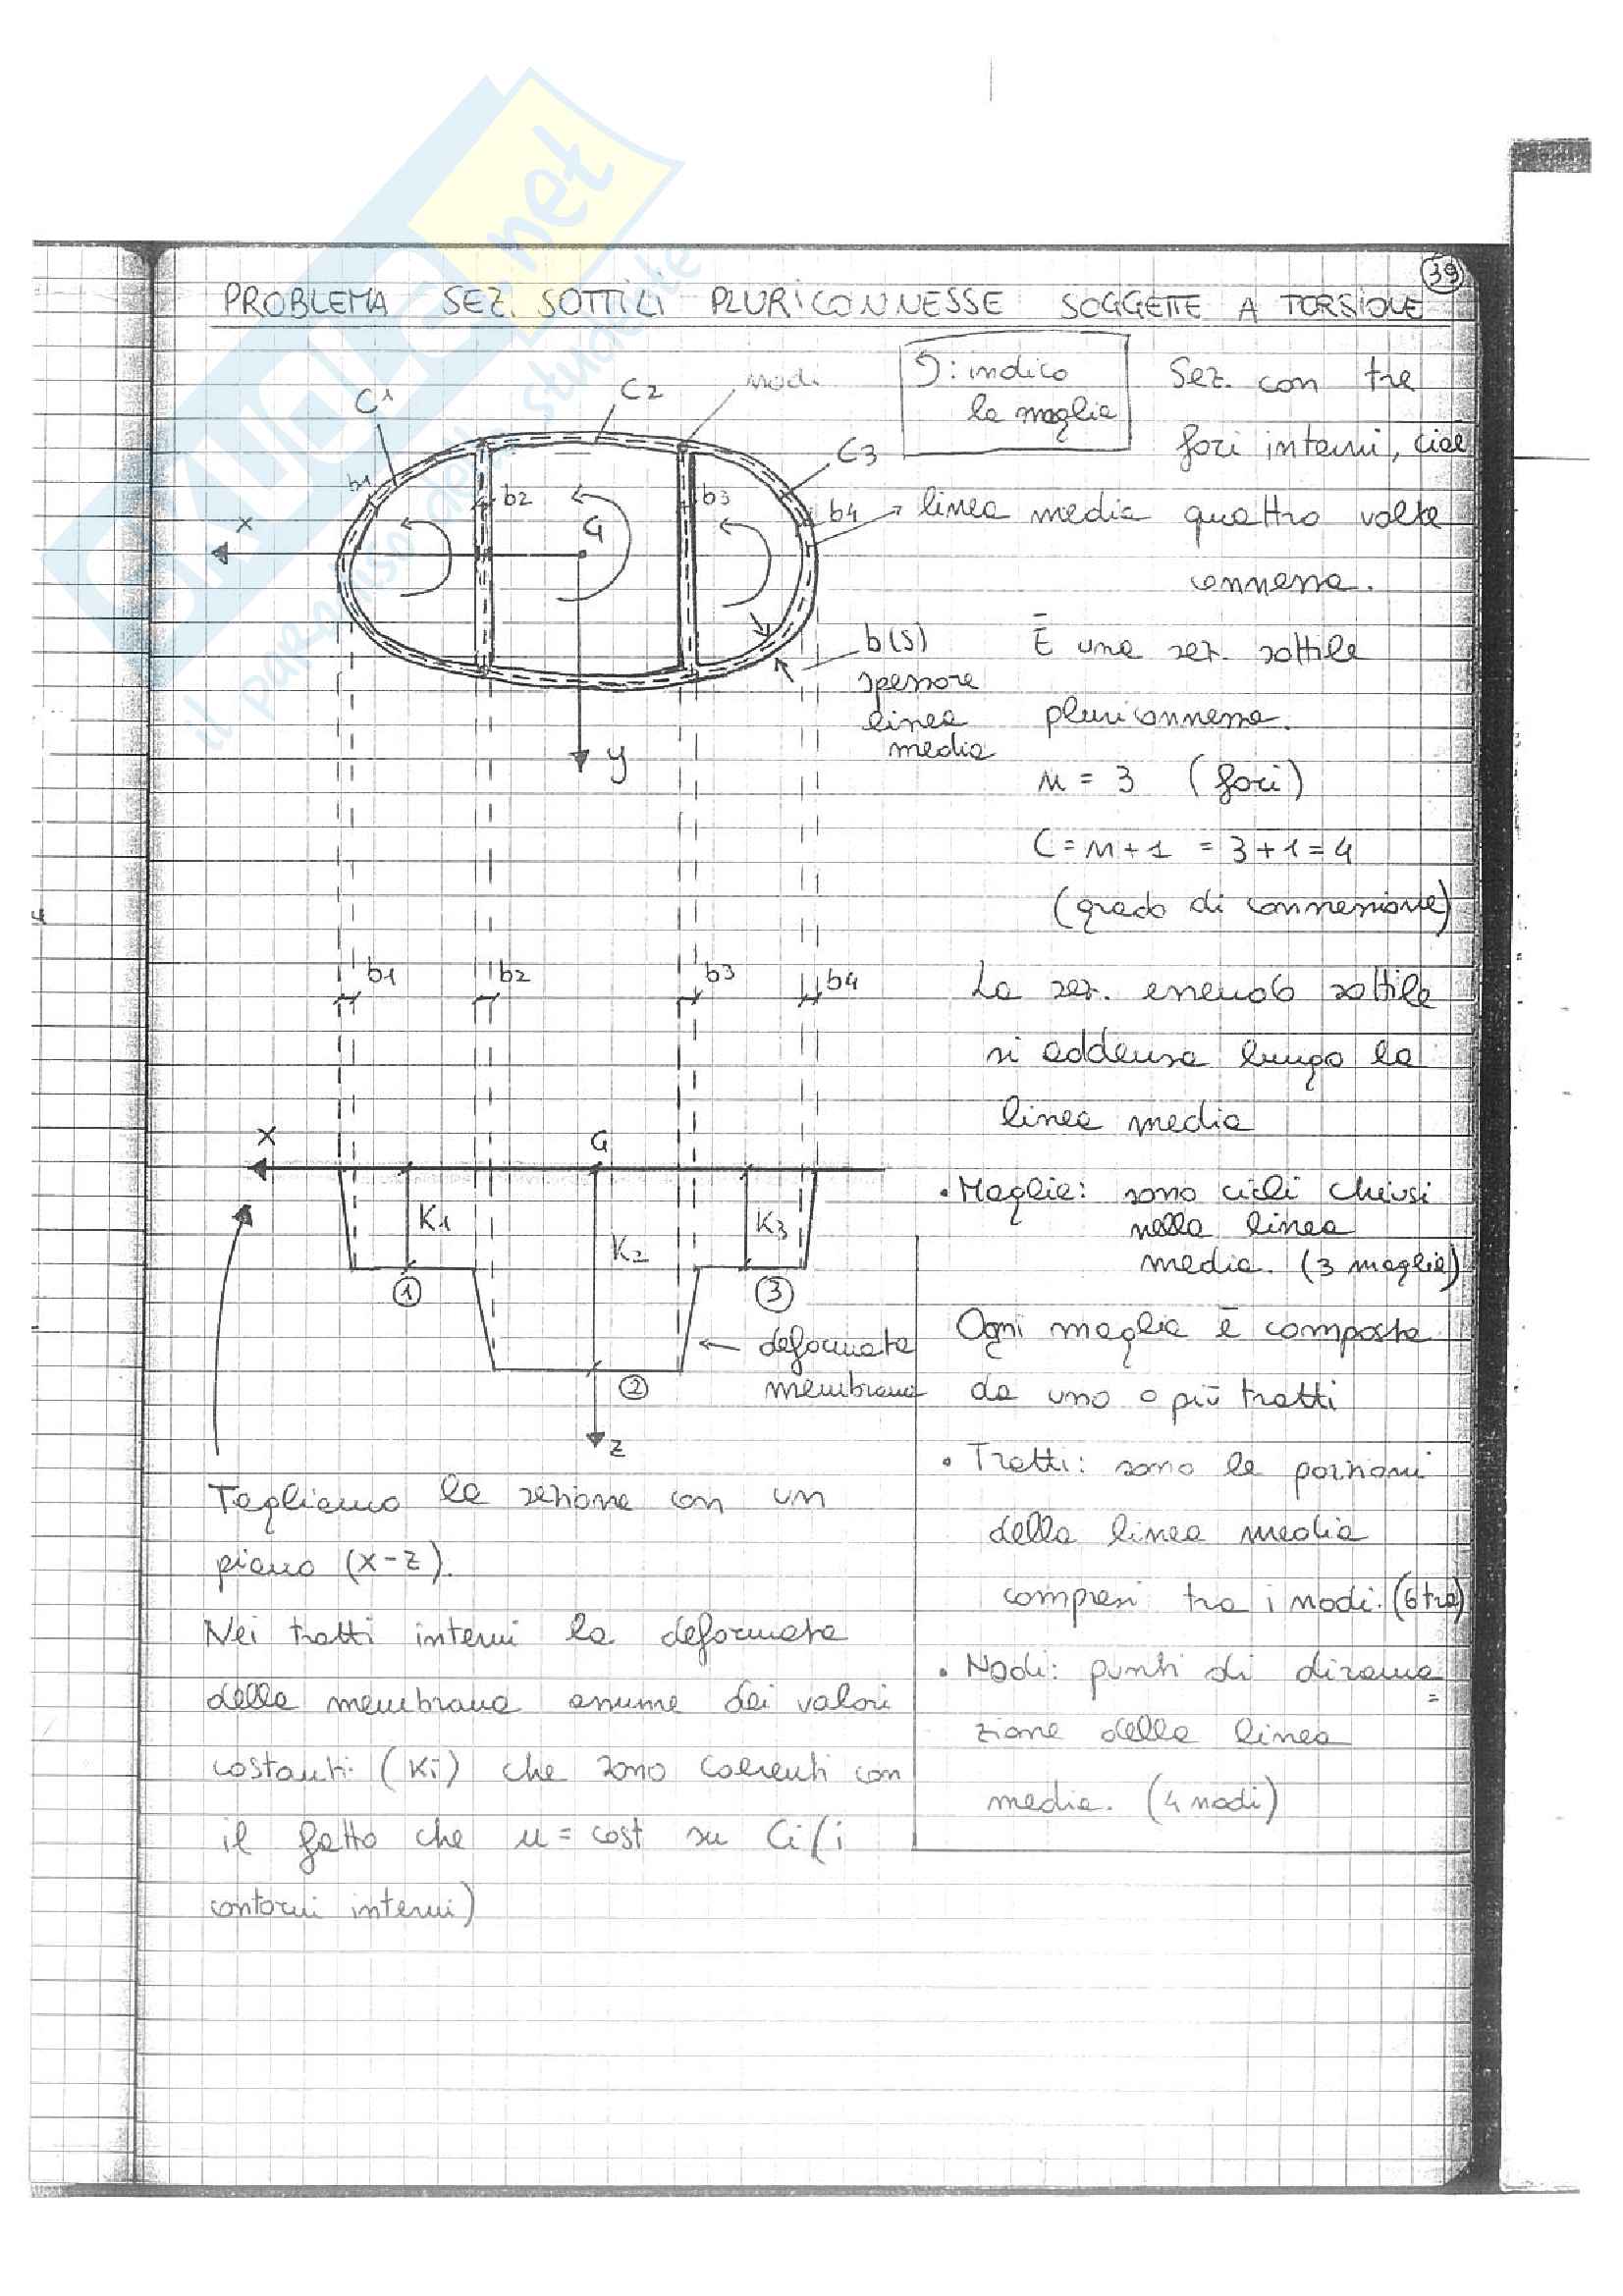 39
PROBLEMA SEZ. SOTTILI PLURICONNESSE SOGGETTE A TORSIONE
: indico
la maglia
Nodi
C1
C2
C3
b1
b2
b3
b4
G
x
y
b(s)
spessore
linea
media
Sez. con tre
fori interni, cioè
linea media quattro volte
connessa.
È una sez. sottile
pluriconnessa.
n = 3 (fori)
C = n+1 = 3+1 = 4
(grado di connessione)
b1
b2
b3
b4
La sez. essendo sottile
si addensa lungo la
linea media
x
G
K1
K2
K3
1
2
3
z
← deformata
membrana
• Maglie: sono cicli chiusi
nella linea
media. (3 maglie)
Ogni maglia è composta
da uno o più tratti
• Tratti: sono le porzioni
della linea media
compresi tra i nodi. (6 tra)
• Nodi: punti di dirama=
zione della linea
media. (4 nodi)
Tagliamo la sezione con un
piano (x-z).
Nei tratti interni la deformata
della membrana assume dei valori
costanti (Ki) che sono coerenti con
il fatto che u = cost su Ci (i
contorni interni)
SKUOLA.net
il paradiso dello studente